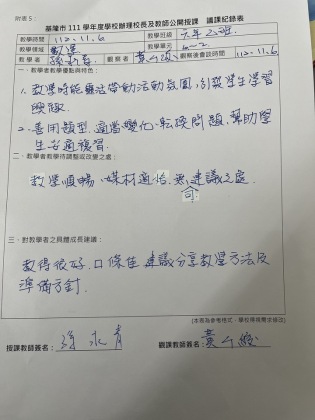 附表5:
基隆市 111 學年度學校辦理校長及教師公開授課 議課紀錄表
教學時間 112.11.6 教學班級 六年乙班
教學領域 數學 教學單元
教學者 觀察者 觀察後會談時間 112.11.6
一、教學者教學優點與特色：
1. 教學時能
活動氛圍,引發學生學習
興趣.
2. 善用題型,適當變化、轉換問題,幫助學
生
複習.
二、教學者教學待調整或改變之處：
教學順暢、媒材適恰,無可建議之處.
三、對教學者之具體成長建議：
教得很好,口條佳,建議分享教學方法及
準備方針.
(本表為參考格式，學校得視需求修改)
授課教師簽名： 觀課教師簽名：